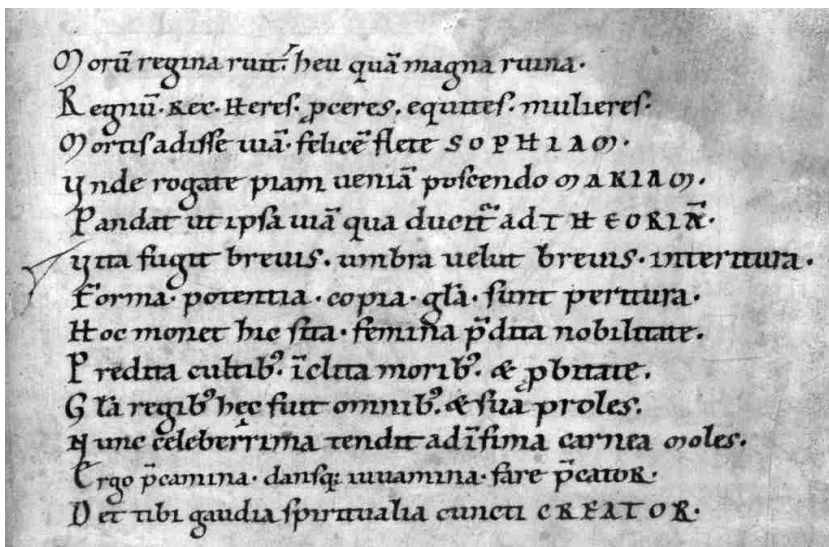 Morū regina ruit. heu quā magna ruina.
Regnū. Rex. Heres. pceres. equites. mulieres.
Mortis adisse uiā. felicē flete SOPHIAM.
Vnde rogate piam ueniā poscendo MARIAM.
Pandat ut ipsa uiā qua ducit᷑ ad THEORIĀ.
Vita fugit breuis. umbra uelut breuis. interitura.
Forma. potentia. copia. glā. sunt peritura.
Hoc monet hic sita. femina p̄dita nobilitate.
Predita cultibꝰ. īclita moribꝰ. & ꝓbitate.
Glā regibꝰ hęc fuit omnibꝰ. & sua proles.
Nunc celeberrima tendit ad īfima carnea moles.
Ergo p̄camina. dansq; iuuamina. fare p̄catoR.
Det tibi gaudia spiritualia cuncti CREATOR.